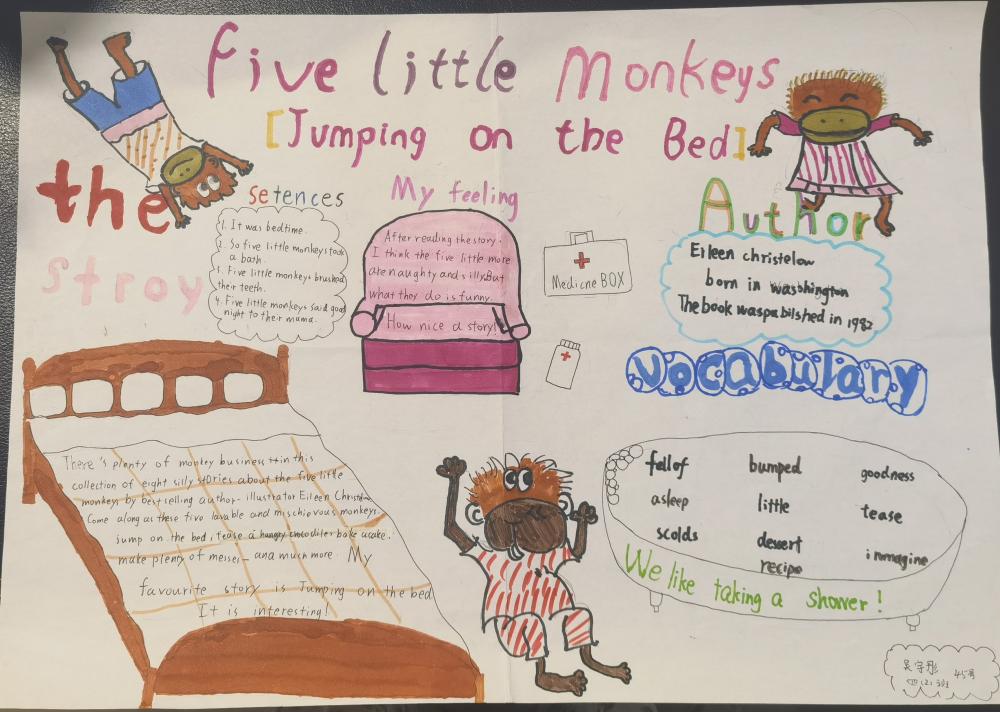 Five little Monkeys
[Jumping on the Bed]
the
stroy
setences
1. It was bedtime.
2. So five little monkeys took
a bath.
3. Five little monkeys brushed
their teeth.
4. Five little monkeys said good
night to their mama.
My feeling
After reading the story.
I think the five little more
are naughty and silly.But
what they do is funny.
How nice a story!
Medicine BOX
Author
Eileen christelow
born in washington
The book waspabilshed in 1982
Vocabulary
fell of bumped goodness
asleep little tease
scolds dessert immagine
recipe
We like taking a shower!
There's plenty of monkey business in this
collection of eight silly stories about the five little
monkeys by best selling author- illustrator Eileen Christelow
Come along as these five lavable and mischievous monkeys
jump on the bed, tease a hungry crocodile, bake a cake.
make plenty of messes- and much more. My
favourite story is Jumping on the bed
It is interesting!
吴宇彤 45号
四(2)班